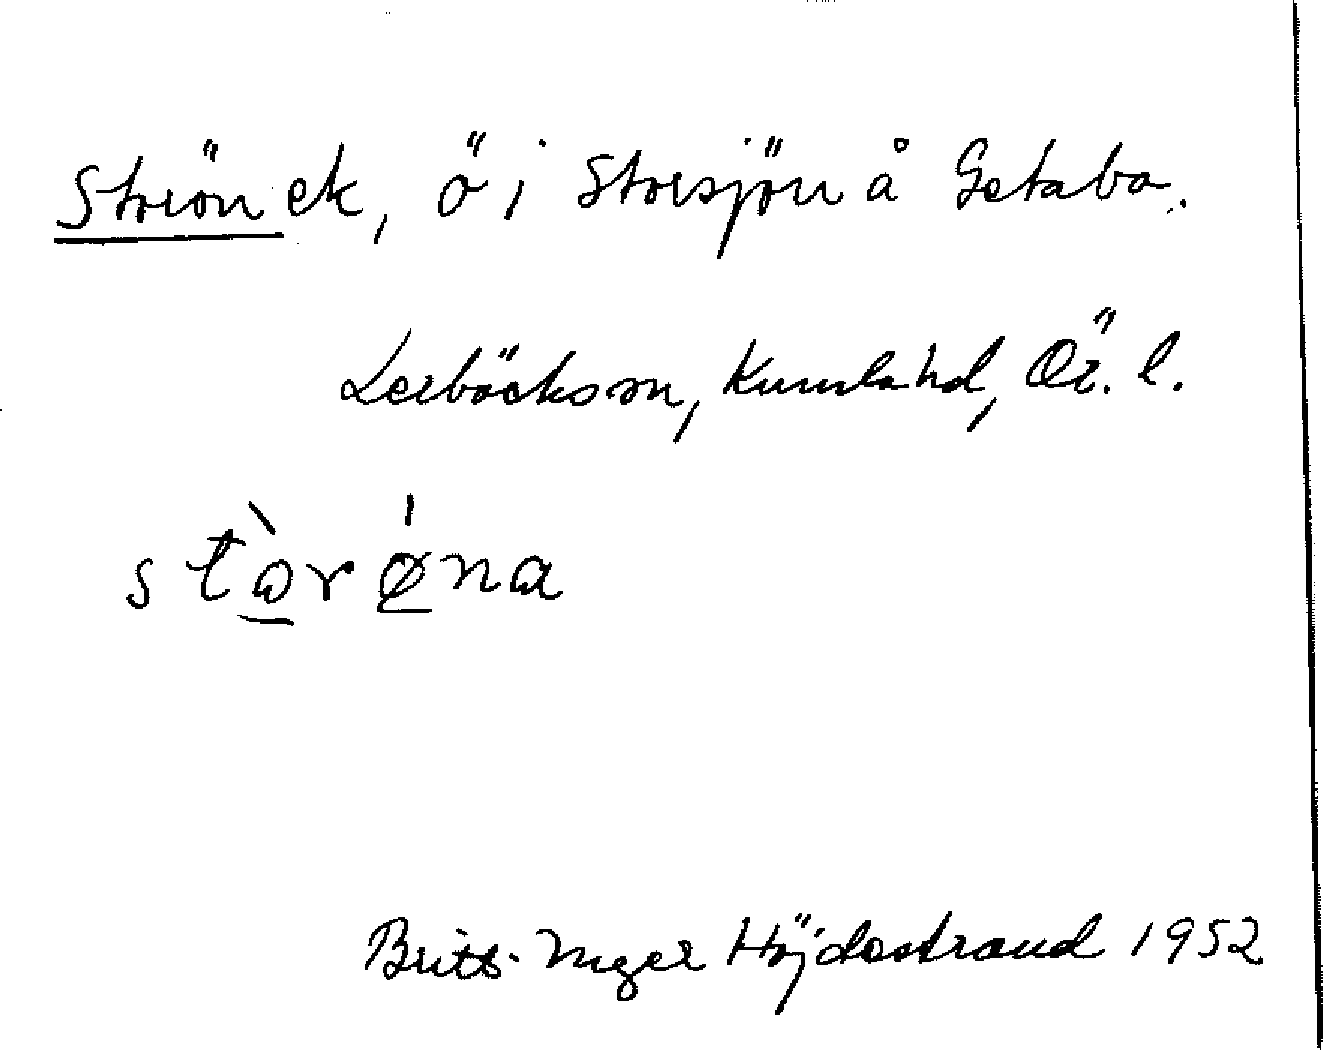 Storön ek, ö i Storsjön å Getabo.
Lerbäcks sn, Kumla hd, Ör. l.
stòrǿna
Britt-Inger Höjdestrand 1952